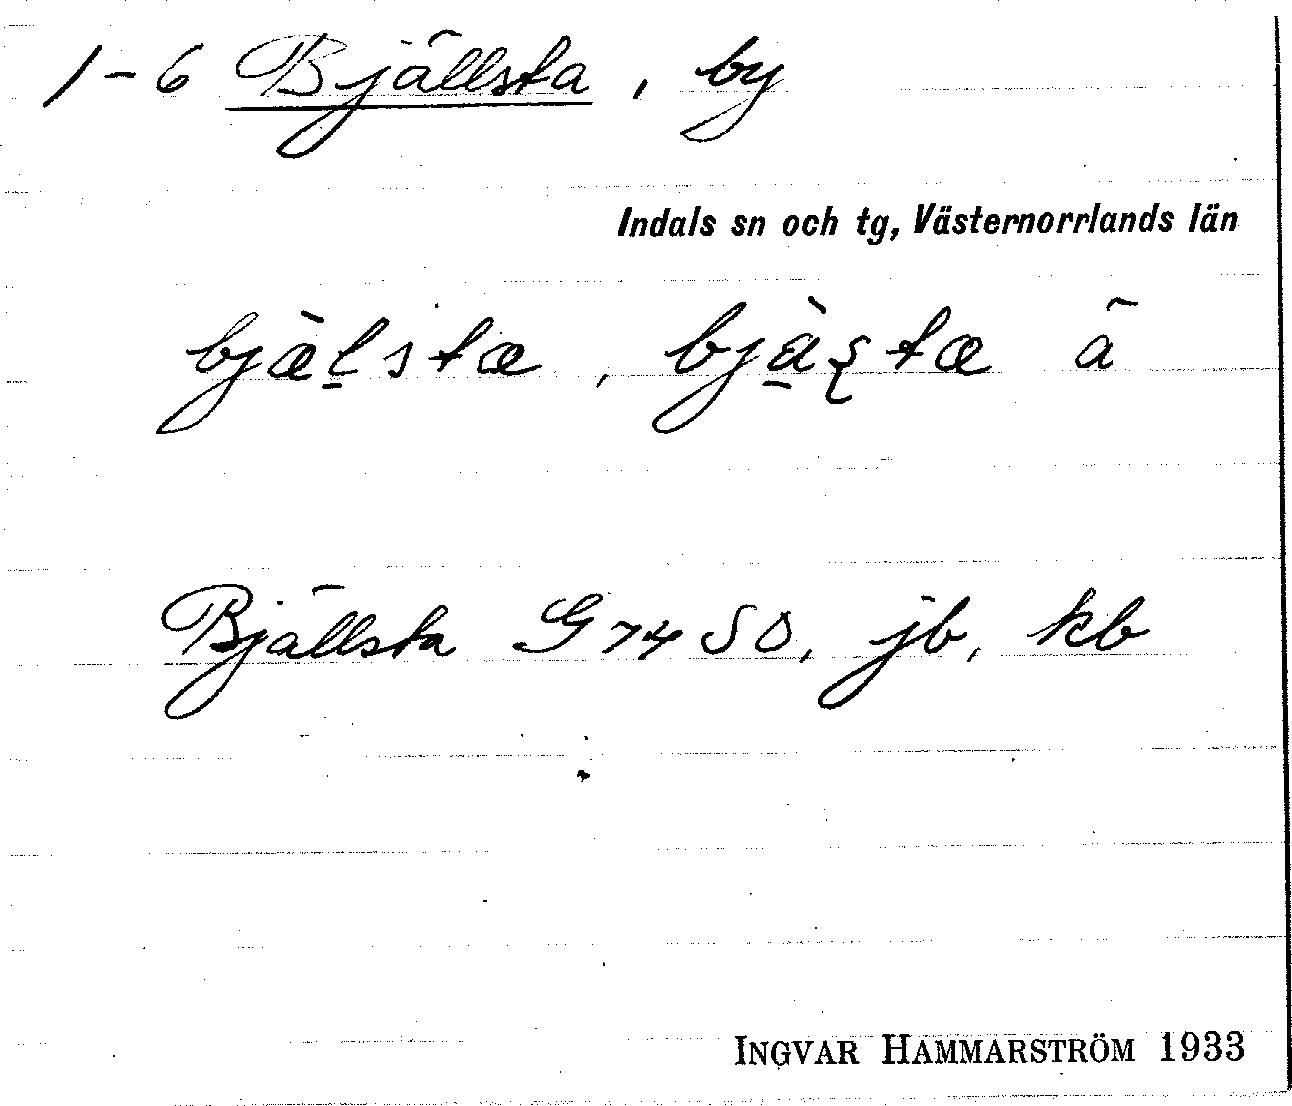 1-6 Bjällsta, by
Indals sn och tg, Västernorrlands län
bjæ̀l̠stæ, bjà̠ştæ ä
Bjällsta G74SO, jb, kb
INGVAR HAMMARSTRÖM 1933